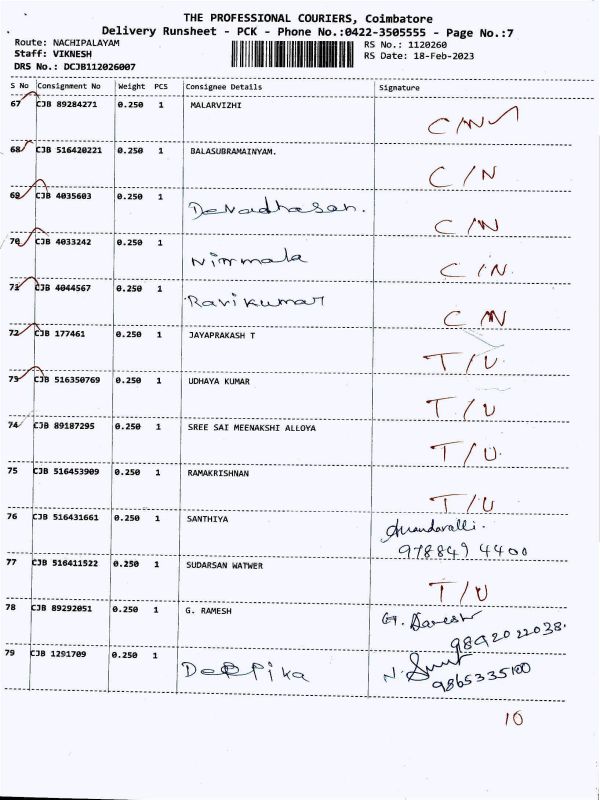 THE PROFESSIONAL COURIERS, Coimbatore
Delivery Runsheet - PCK - Phone No.:0422-3505555 - Page No.:7
Route: NACHIPALAYAM
RS No.: 1120260
Staff: VIKNESH
RS Date: 18-Feb-2023
DRS No.: DCJB112026007
S No Consignment No Weight PCS Consignee Details Signature
67 CJB 89284271 0.250 1 MALARVIZHI C/N
68 CJB 516420221 0.250 1 BALASUBRAMAINYAM. C/N
69 CJB 4035603 0.250 1 Devadhasan. C/N
70 CJB 4033242 0.250 1 Nirmala C/N.
71 CJB 4044567 0.250 1 Ravikumar C/N
72 CJB 177461 0.250 1 JAYAPRAKASH T T/U.
73 CJB 516350769 0.250 1 UDHAYA KUMAR T/U
74 CJB 89187295 0.250 1 SREE SAI MEENAKSHI ALLOYA T/U.
75 CJB 516453909 0.250 1 RAMAKRISHNAN T/U
76 CJB 516431661 0.250 1 SANTHIYA
978849 4400
77 CJB 516411522 0.250 1 SUDARSAN WATWER T/U
78 CJB 89292051 0.250 1 G. RAMESH
9892022038.
79 CJB 1291709 0.250 1 Deepika
9865335100
10